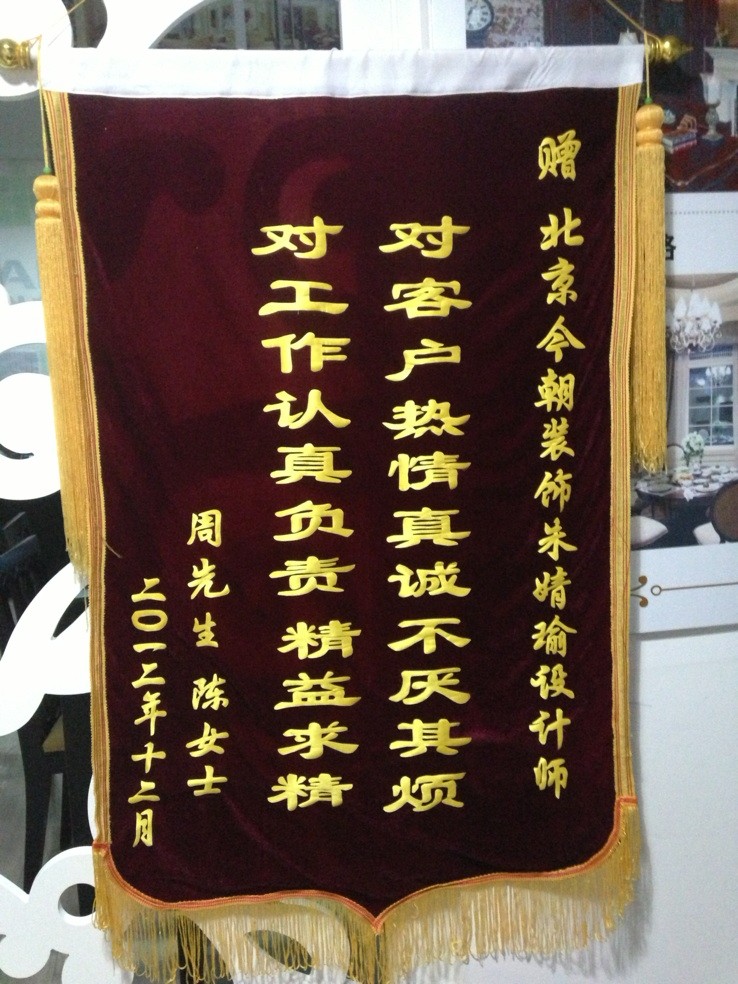 赠 北京今朝装饰朱婧瑜设计师
对客户热情真诚不厌其烦
对工作认真负责 精益求精
周先生 陈女士
二〇一二年十二月